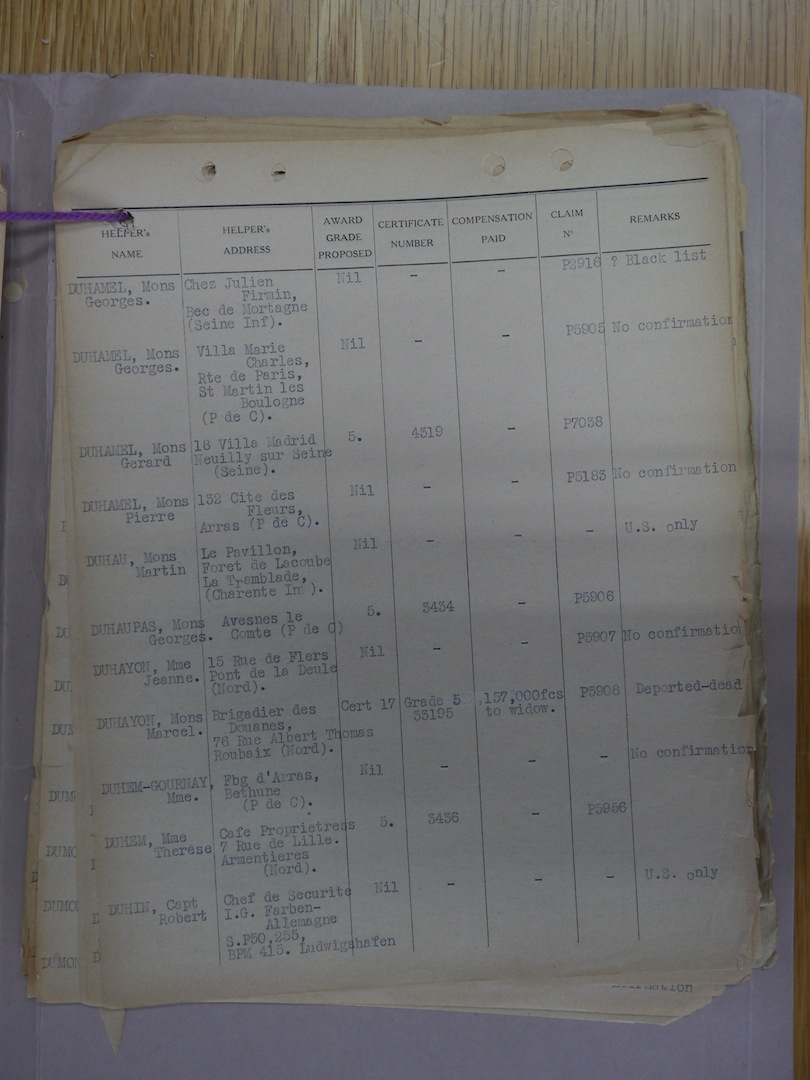 HELPER's NAME HELPER's ADDRESS AWARD GRADE PROPOSED CERTIFICATE NUMBER COMPENSATION PAID CLAIM N° REMARKS
DUHAMEL, Mons Chez Julien Nil - - P2916 ? Black list
Georges. Firmin,
Bec de Mortagne
(Seine Inf).
DUHAMEL, Mons Villa Marie Nil - - P5905 No confirmation
Georges. Charles,
Rte de Paris,
St Martin les
Boulogne
(P de C).
DUHAMEL, Mons 18 Villa Madrid 5. 4319 - P7038
Gerard Neuilly sur Seine
(Seine).
DUHAMEL, Mons 132 Cite des Nil - - P5183 No confirmation
Pierre Fleurs,
Arras (P de C).
DUHAU, Mons Le Pavillon, Nil - - - U.S. only
Martin Foret de Lacoube
La Tramblade,
(Charente In ).
DUHAUPAS, Mons Avesnes le 5. 3434 - P5906
Georges. Comte (P de C)
DUHAYON, Mme 15 Rue de Flers Nil - - P5907 No confirmatio
Jeanne. Pont de la Deule
(Nord).
DUHAYON, Mons Brigadier des Cert 17 Grade 5 157,000fcs P5908 Deported-dead
Marcel. Douanes, 33195 to widow.
76 Rue Albert Thomas
Roubaix (Nord).
DUHEM-GOURNAY, Fbg d'Arras, Nil - - - No confirmation
Mme. Bethune
(P de C).
DUHEM, Mme Cafe Proprietress 5. 3436 - P5956
Therese 7 Rue de Lille.
Armentieres
(Nord).
DUHIN, Capt Chef de Securite Nil - - - U.S. only
Robert I.G. Farben-
Allemagne
S.P50,255,
BPM 415. Ludwigshafen